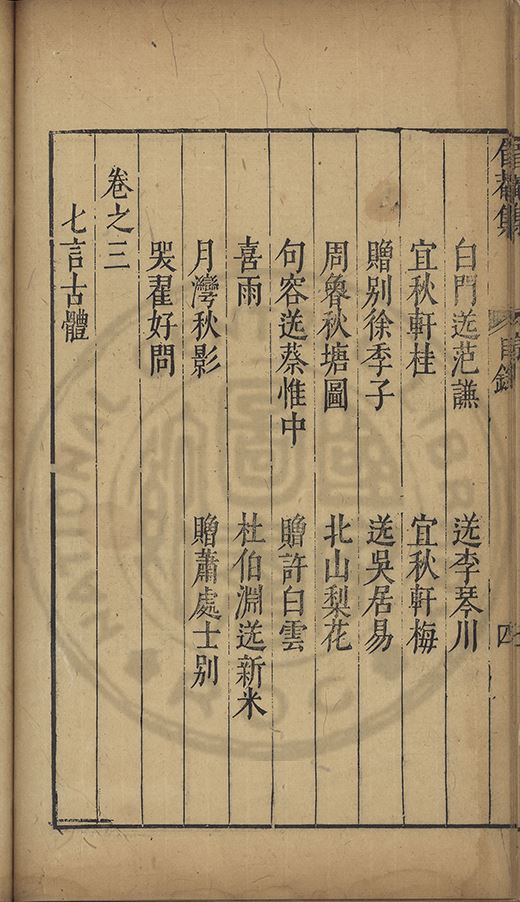 目錄
四
白門送范謙　送李琴川
宜秋軒桂　宜秋軒梅
贈别徐季子　送吳居易
周魯秋塘圖　北山梨花
句容送蔡惟中　贈許白雲
喜雨　杜伯淵送新米
月灣秋影　贈蕭處士别
哭翟好問
卷之三
七言古體